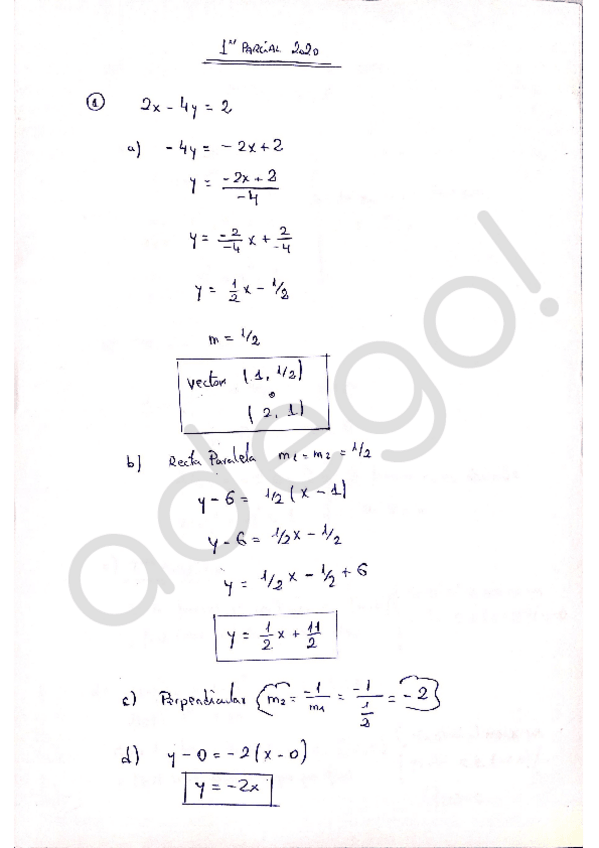 1er PARCIAL 2020
① 2x - 4y = 2
a) - 4y = - 2x + 2
y = -2x + 2 / -4
y = -2/-4 x + 2/-4
y = 1/2 x - 1/2
m = 1/2
vector (1, 1/2)
o
(2, 1)
b) Recta Paralela m1 = m2 = 1/2
y - 6 = 1/2 (x - 1)
y - 6 = 1/2 x - 1/2
y = 1/2 x - 1/2 + 6
y = 1/2 x + 11/2
c) Perpendicular m2 = -1/m1 = -1/(1/2) = -2
d) y - 0 = -2 (x - 0)
y = -2x
adego!